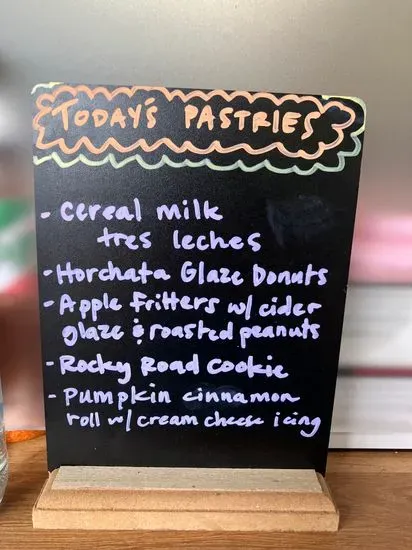 TODAY'S PASTRIES
- Cereal milk
tres leches
- Horchata Glaze Donuts
- Apple fritters w/ cider
glaze & roasted peanuts
- Rocky Road Cookie
- Pumpkin cinnamon
roll w/ cream cheese icing